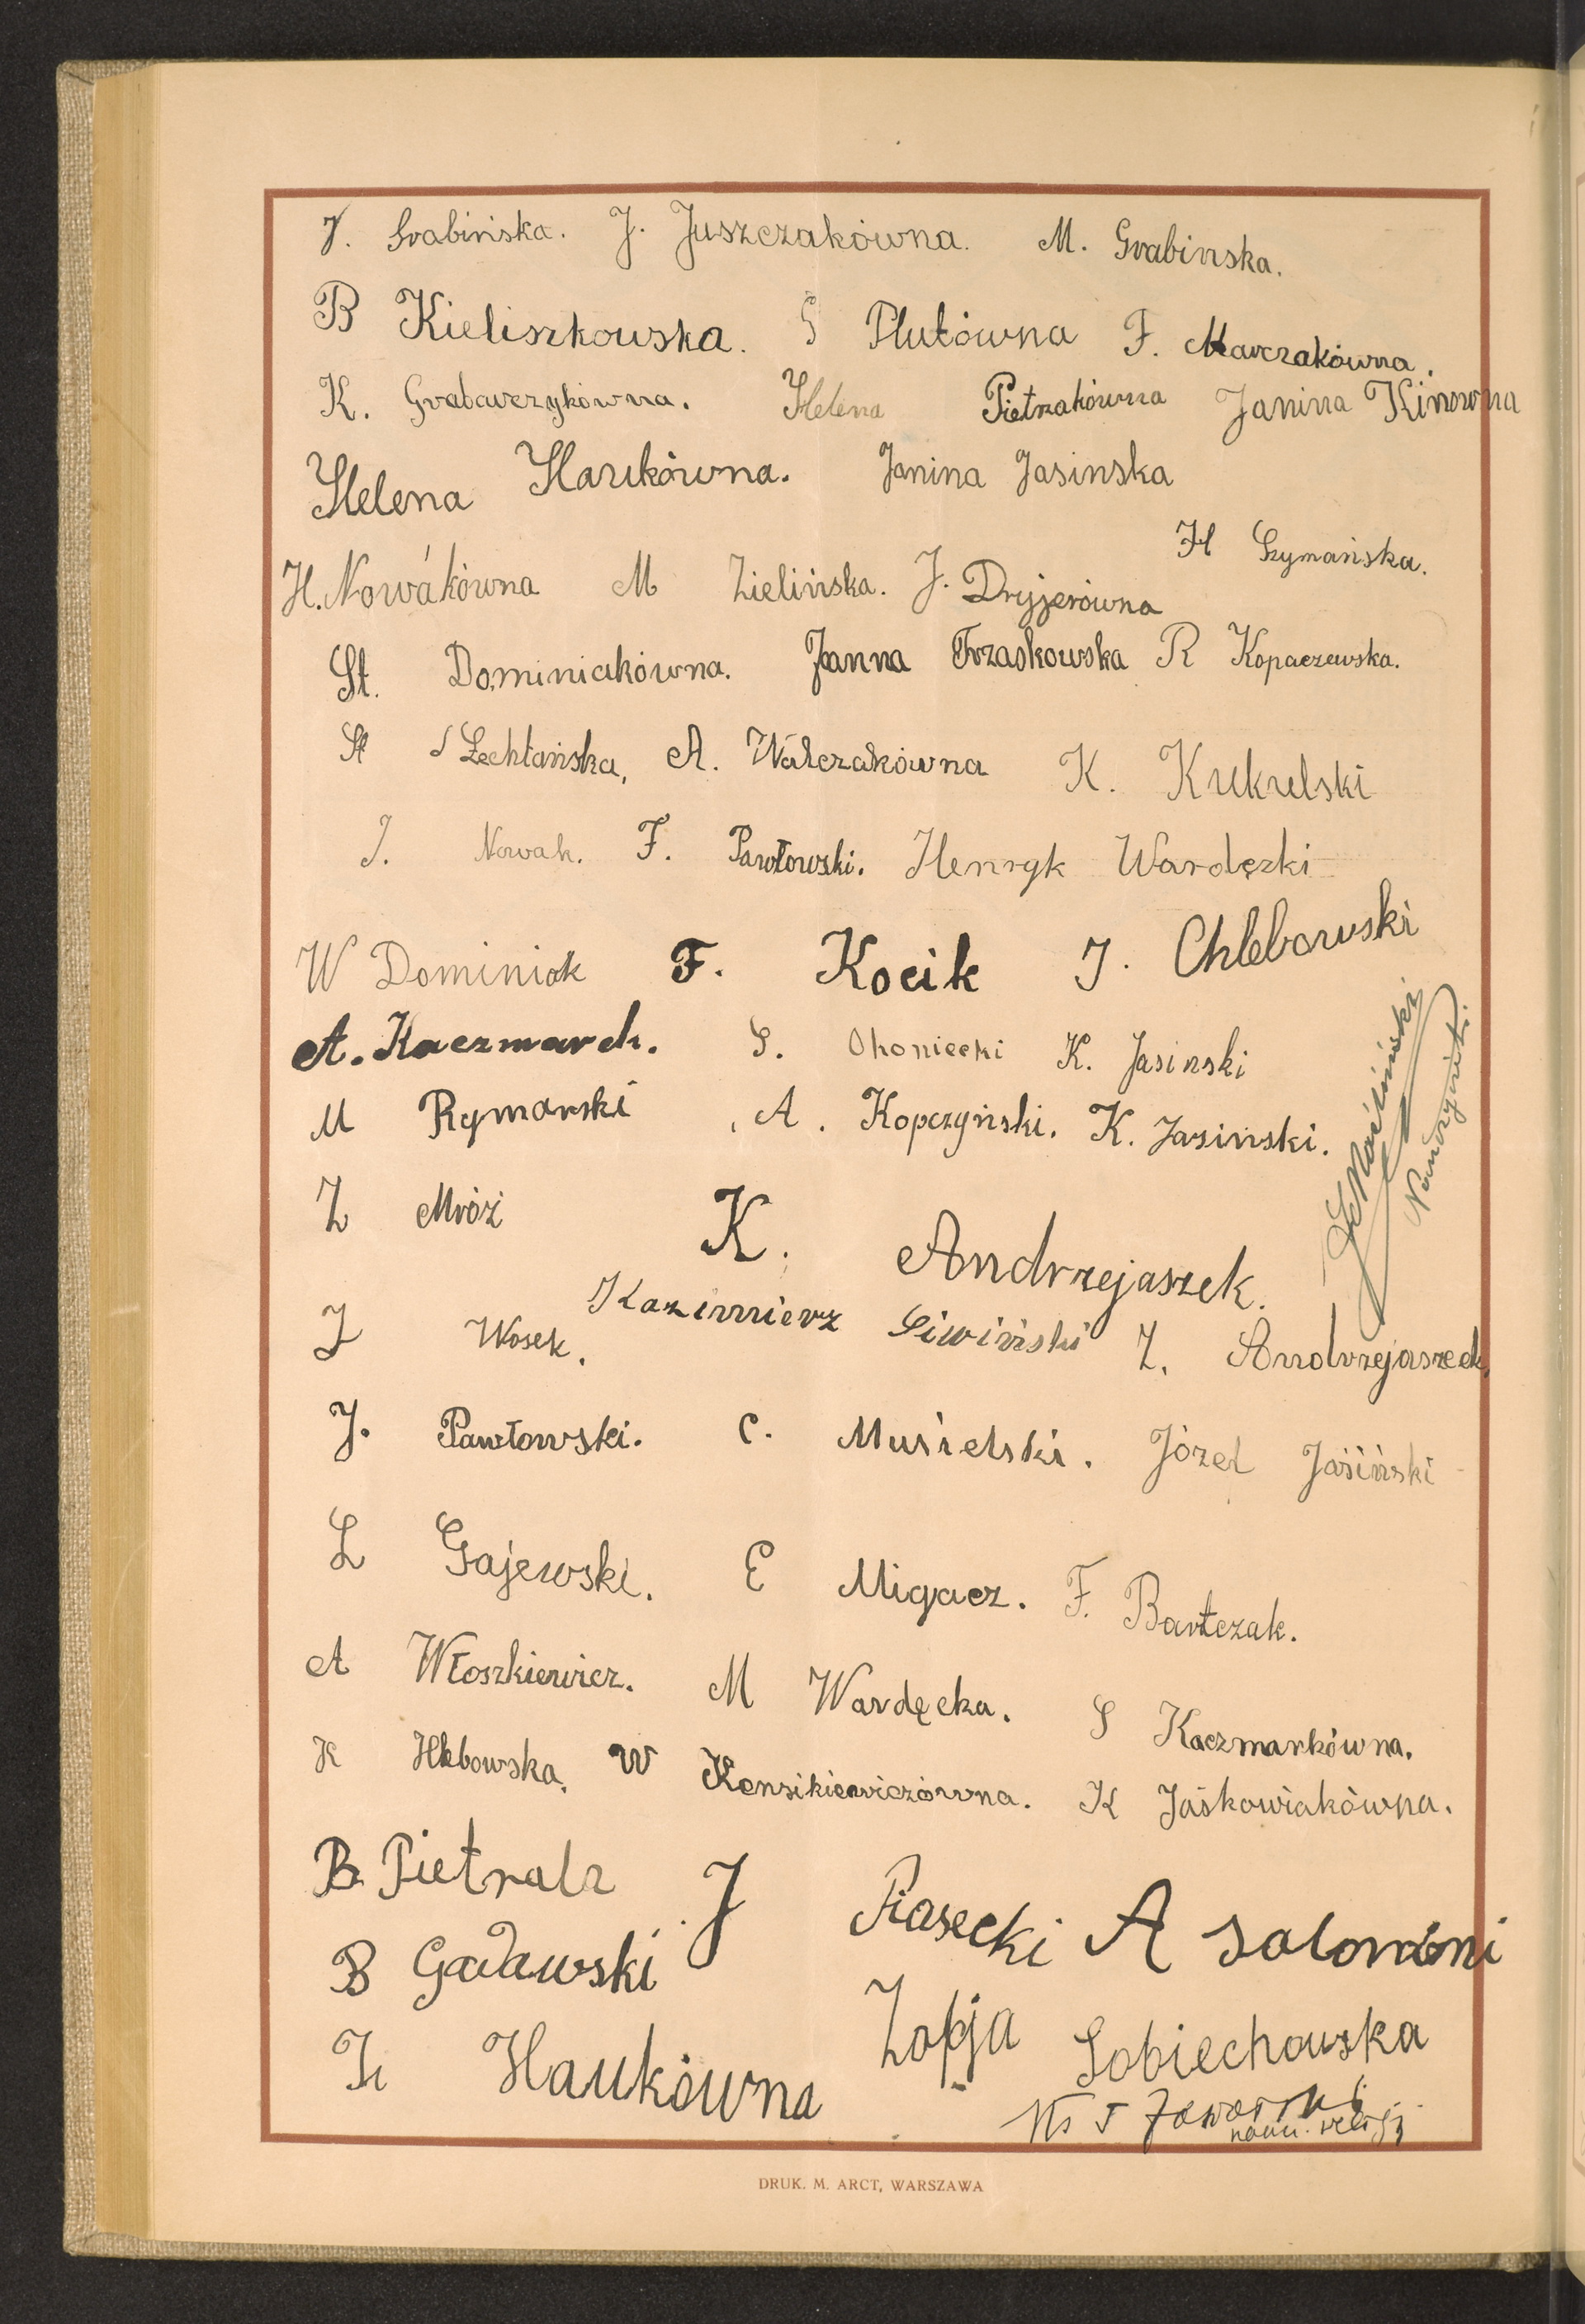 J. Grabińska. J. Juszczakówna. M. Grabinska.
B Kieliszkowska. G Plutówna F. Marczakówna.
K. Grabarczykówna. Helena Pietrzakówna Janina Kinowna
Helena Haukówna. Janina Jasinska
H Szymańska.
H. Nowakówna M Zielińska. J. Dryjerówna
St. Dominiakówna. Janna Trzaskowska R Kopaczewska.
St Żechłańska, A. Walczakówna K. Kukulski
J. Nowak. F. Pawłowski. Henryk Wardęzki
W Dominiak F. Kocik J. Chlebowski
A. Kaczmarek. S. Okoniecki K. Jasinski
M Rymarski A. Kopczyński. K. Jasiński.
Z Mróz K. Andrzejaszek.
J Wosek. Kazimierz Siwiński Z. Andrzejaszek.
J. Pawłowski. C. Musielski. Józef Jasiński
L Gajewski. E Migacz. F. Bartczak.
A Włoszkiewicz. M Wardęcka. S Kaczmarkówna.
K Hlebowska. W Kensikiewiczówna. K Jaśkowiakówna.
B. Pietrala J Piasecki A Salomoni
B Gadawski
Haukówna Zofja Sobiechowska
Ks J Jaworski
naucz. religji
DRUK. M. ARCT, WARSZAWA